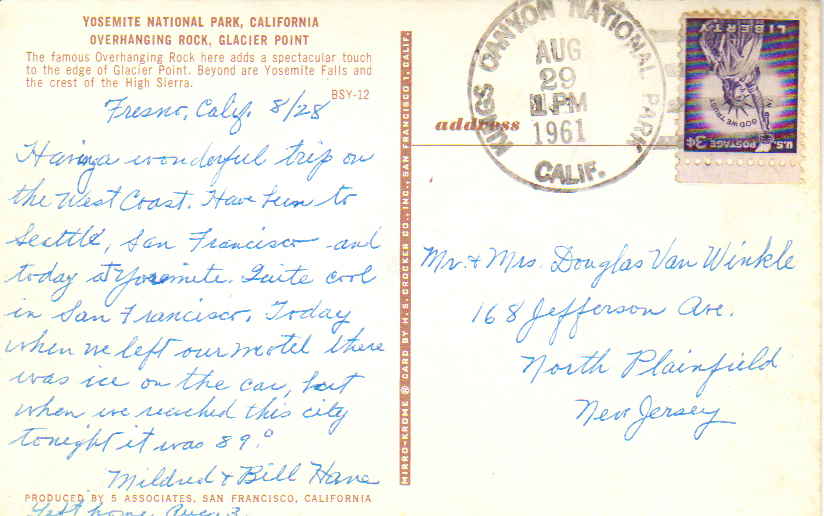 YOSEMITE NATIONAL PARK, CALIFORNIA
OVERHANGING ROCK, GLACIER POINT
The famous Overhanging Rock here adds a spectacular touch
to the edge of Glacier Point. Beyond are Yosemite Falls and
the crest of the High Sierra.
BSY-12
Fresno, Calif. 8/28
Having a wonderful trip on
the West Coast. Have been to
Seattle, San Francisco and
today at Yosemite. Quite cool
in San Francisco. Today
when we left our motel there
was ice on the car, but
when we reached this city
tonight it was 89.°
Mildred & Bill Hane
PRODUCED BY 5 ASSOCIATES, SAN FRANCISCO, CALIFORNIA
Left home Aug. 3
MIRRO-KROME ® CARD BY H. S. CROCKER CO., INC., SAN FRANCISCO 1, CALIF.
address
KINGS CANYON NATIONAL PARK
AUG
29
1 PM
1961
CALIF.
U.S. POSTAGE 3¢
IN GOD WE TRUST
LIBERTY
Mr. & Mrs. Douglas Van Winkle
168 Jefferson Ave.
North Plainfield
New Jersey